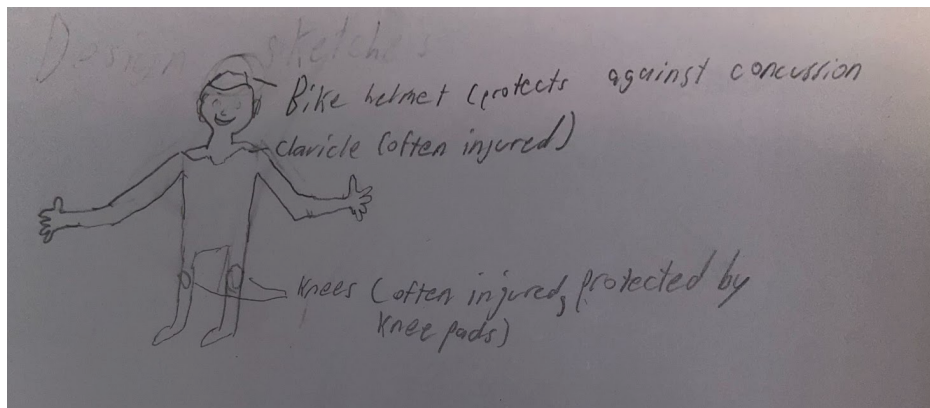 Design sketches
Bike helmet (protects against concussion
clavicle (often injured)
Knees (often injured, protected by
knee pads)